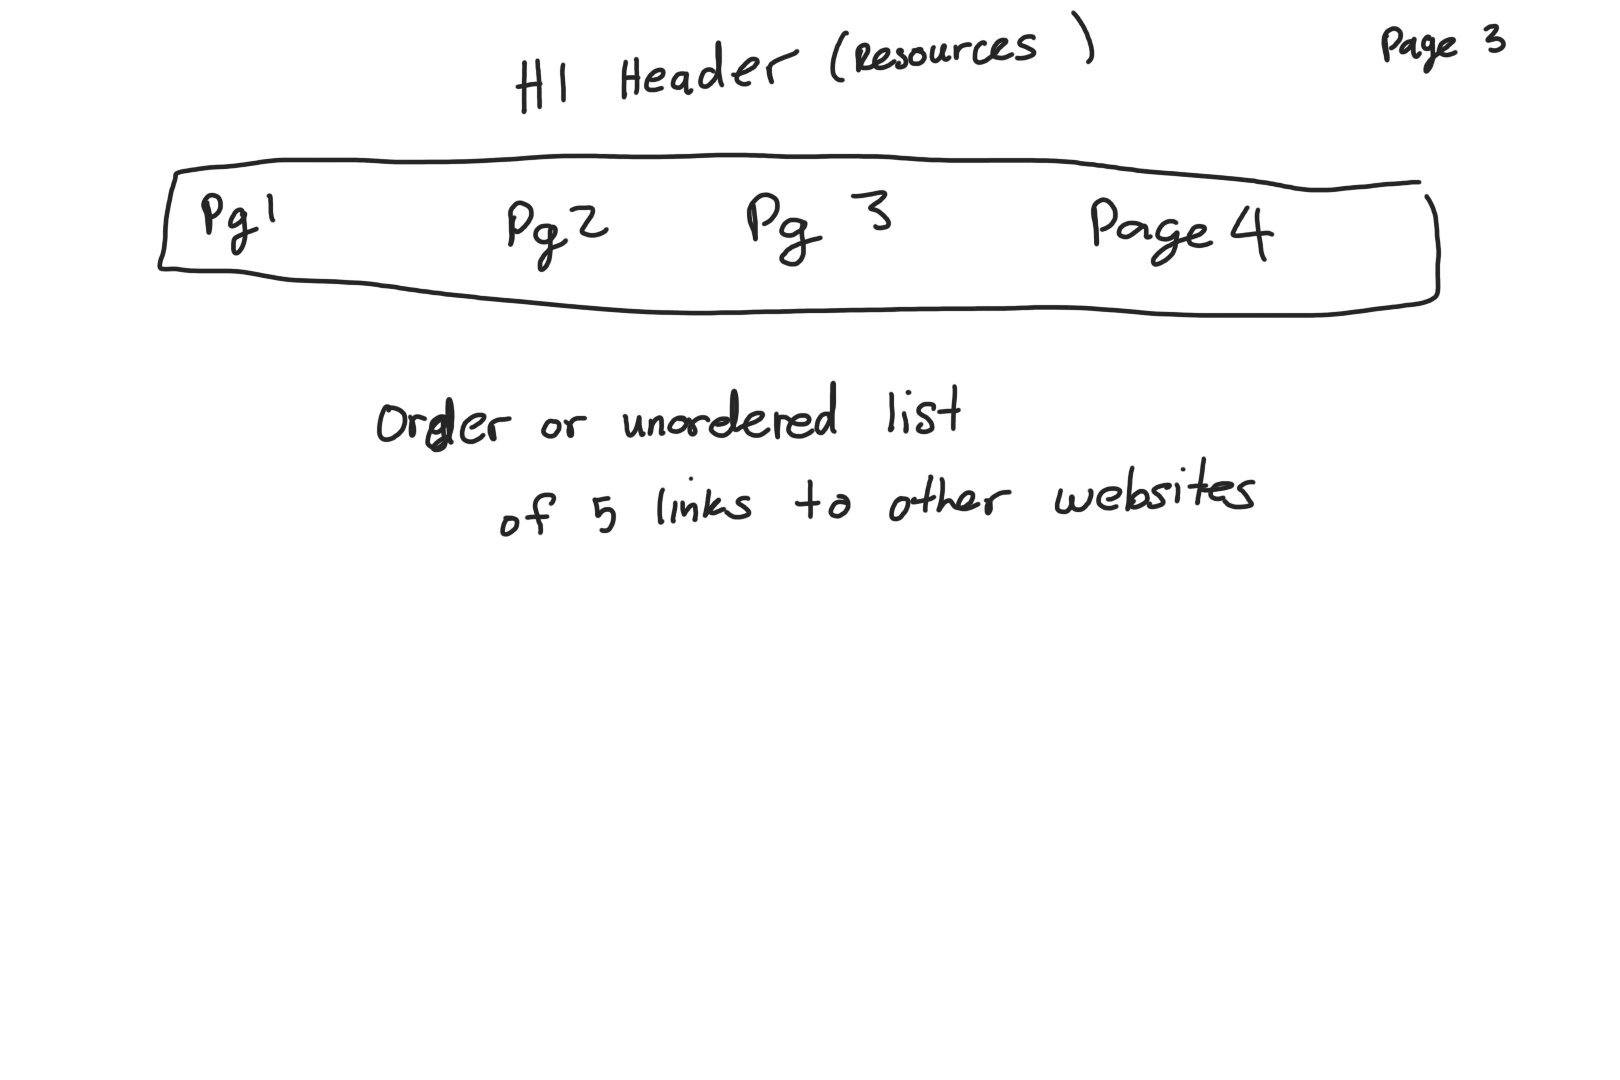 H1 Header (Resources)
Page 3
Pg 1 Pg 2 Pg 3 Page 4
Order or unordered list
of 5 links to other websites